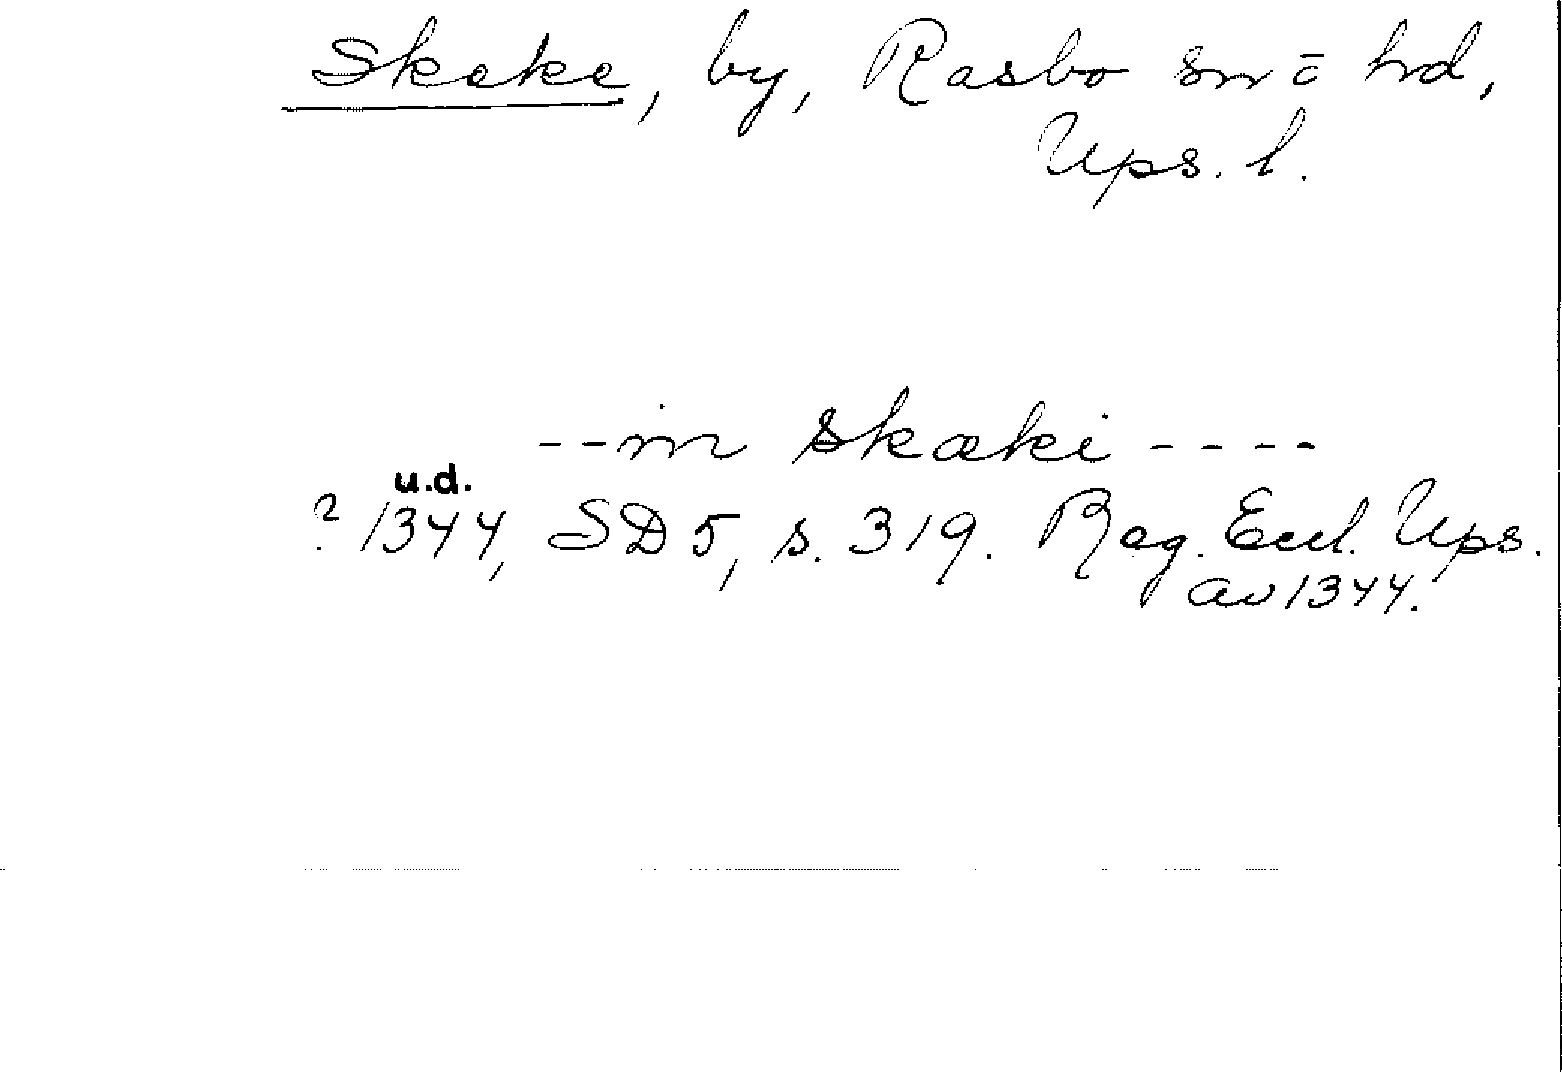 Skeke, by, Rasbo sn o hd,
Ups. l.
--in skæki----
u.d.
? 1344, SD 5, s. 319. Reg. Eccl. Ups.
av 1344.